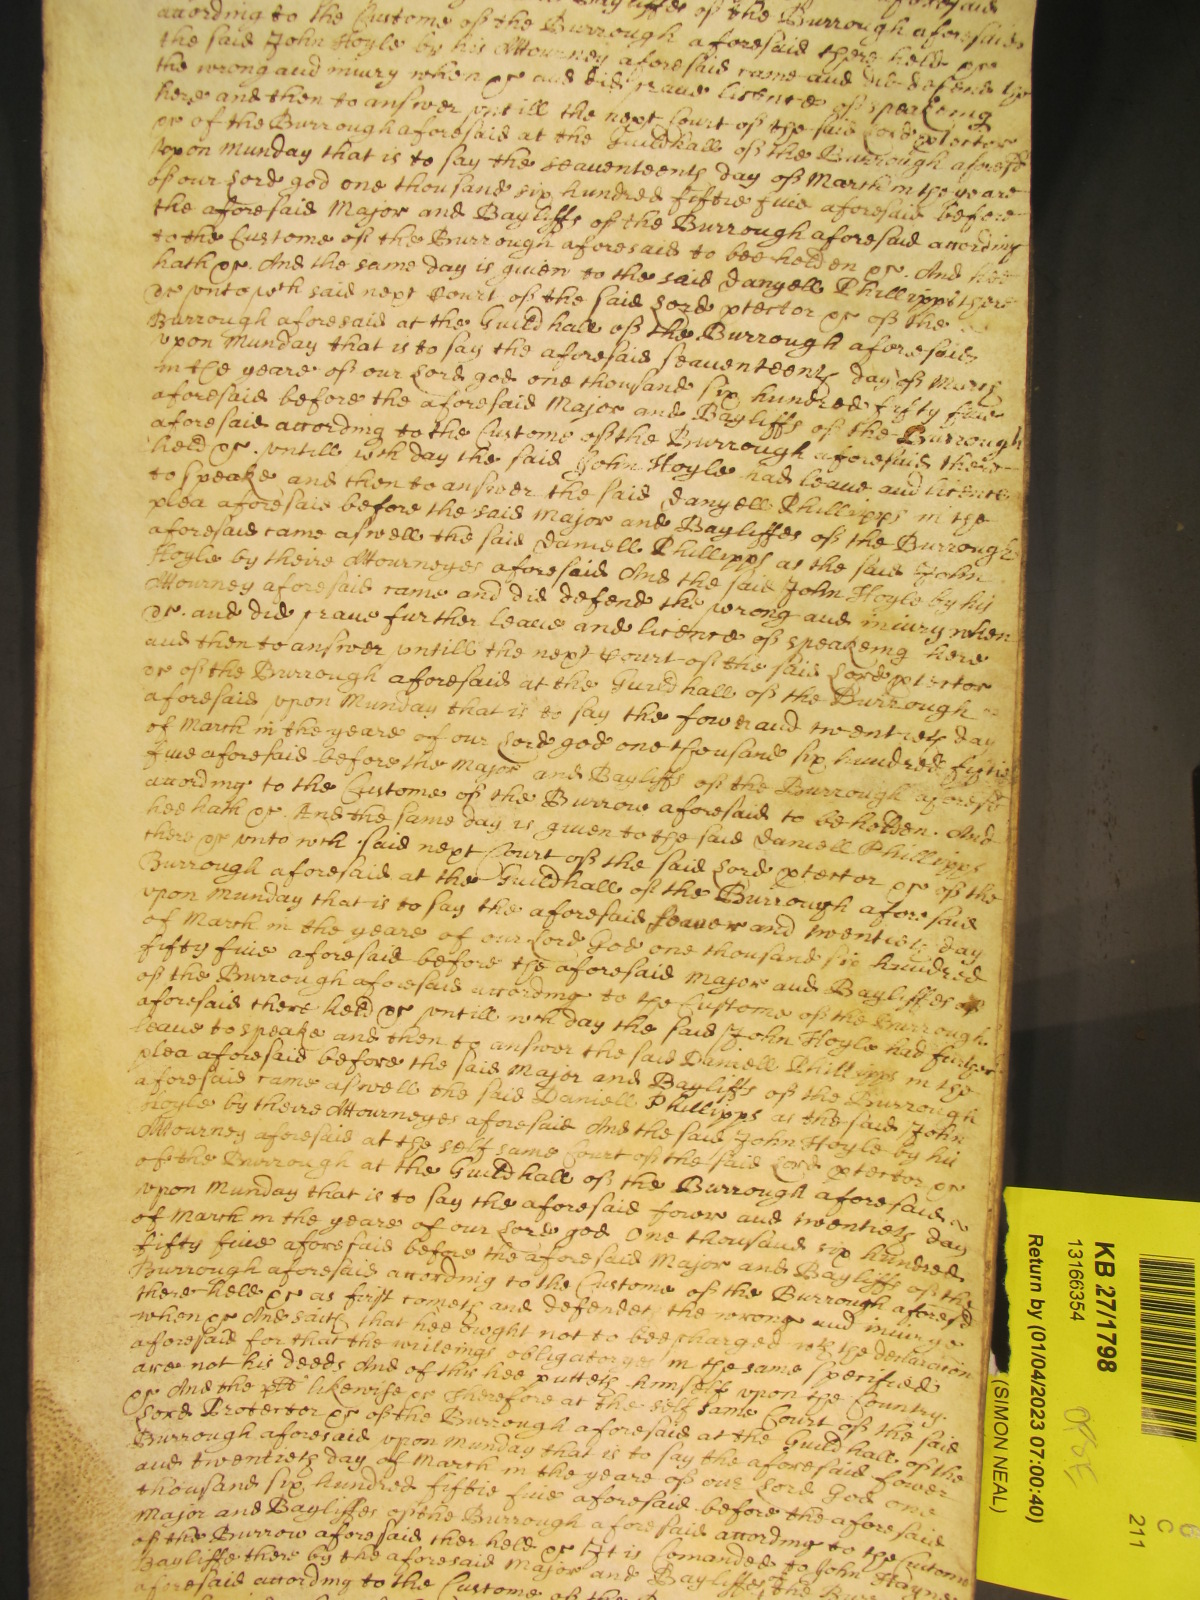 Bayliffes of the Burrough aforesaid
according to the Custome of the Burrough aforesaid there held &c
the said John Hoyle by his Attourney aforesaid came and did defend the
the wrong and iniury when &c and did craue licence of speakeing
here and then to answer vntill the next Court of the said Lord ptector
&c of the Burrough aforesaid at the Guildhall of the Burrough aforesd
vpon Munday that is to say the seauenteenth day of March in the yeare
of our Lord god one thousand six hundred fiftie fiue aforesaid before
the aforesaid Major and Bayliffs of the Burrough aforesaid according
to the Custome of the Burrough aforesaid to bee holden &c. And hee
hath &c. And the same day is giuen to the said Danyell Phillipps there
&c vnto wch said next Court of the said Lord ptector &c of the
Burrough aforesaid at the Guildhall of the Burrough aforesaid
vpon Munday that is to say the aforesaid seauenteenth day of March
in the yeare of our Lord god one thousand six hundred fifty fiue
aforesaid before the aforesaid Major and Bayliffs of the Burrough
aforesaid according to the Custome of the Burrough aforesaid there
held &c. vntill wch day the said John Hoyle had leaue and licence
to speake and then to answer the said Danyell Phillipps in the
plea aforesaid before the said Major and Bayliffes of the Burrough
aforesaid came aswell the said Daniell Phillipps as the said John
Hoyle by theire Attourneyes aforesaid And the said John Hoyle by his
Attourney aforesaid came and did defend the wrong and iniury when
&c. and did craue further leaue and licence of speakeing here
and then to answer vntill the next Court of the said Lord ptector
&c of the Burrough aforesaid at the Guildhall of the Burrough
aforesaid vpon Munday that is to say the fower and twentieth day
of March in the yeare of our Lord god one thousand six hundred fiftie
fiue aforesaid before the Major and Bayliffs of the Burrough aforesd
according to the Custome of the Burrow aforesaid to be holden. And
hee hath &c. And the same day is giuen to the said Daniell Phillipps
there &c vnto wch said next Court of the said Lord ptector &c of the
Burrough aforesaid at the Guildhall of the Burrough aforesaid
vpon Munday that is to say the aforesaid fower and twentieth day
of March in the yeare of our Lord God one thousand six hundred
fifty fiue aforesaid before the aforesaid Major and Bayliffes of
of the Burrough aforesaid according to the Custome of the Burrough
aforesaid there held &c vntill wch day the said John Hoyle had further
leaue to speake and then to answer the said Daniell Phillipps in the
plea aforesaid before the said Major and Bayliffs of the Burrough
aforesaid came aswell the said Daniell Phillipps as the said John
Hoyle by theire Attourneyes aforesaid And the said John Hoyle by his
Attourney aforesaid at the self same Court of the said Lord ptector &c
of the Burrough at the Guildhall of the Burrough aforesaid
vpon Munday that is to say the aforesaid fower and twentieth day
of March in the yeare of our Lord god One thousand six hundred
fifty fiue aforesaid before the aforesaid Major and Bayliffs of the
Burrough aforesaid according to the Custome of the Burrough aforesd
there held &c as first cometh and defendeth the wrong and iniurye
when &c And saith that hee ought not to bee charged wth the declaration
aforesaid for that the writeings obligatoryes in the same specified
are not his deeds And of this hee putteth himself vpon the Country
&c And the plt likewise &c Therefore at the self same Court of the said
Lord Protector &c of the Burrough aforesaid at the Guildhall of the
Burrough aforesaid vpon Munday that is to say the aforesaid fower
and twentieth day of March in the yeare of our Lord God one
thousand six hundred fiftie fiue aforesaid before the aforesaid
Major and Bayliffes of the Burrough aforesaid according to the Custome
of the Burrow aforesaid ther held &c It is Comanded to John Hayne
Bayliffe there by the aforesaid Major and Bayliffes of the
aforesaid according to the Custome of the
KB 27/1798
13166354
Return by (01/04/2023 07:00:40)
(SIMON NEAL)
C
211